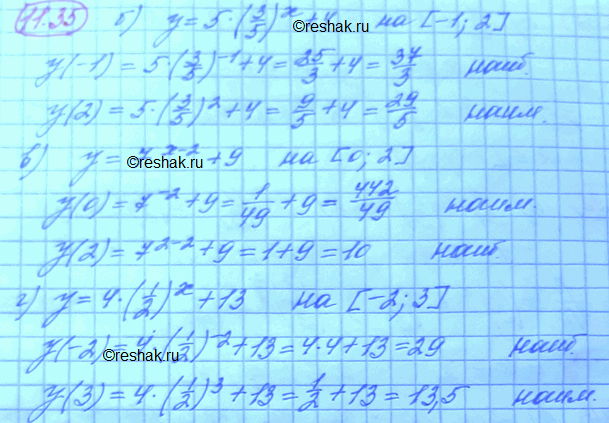 11.35 б) y = 5·(3/5)^x + 4 на [-1; 2]
y(-1) = 5·(3/5)^-1 + 4 = 25/3 + 4 = 37/3 наиб.
y(2) = 5·(3/5)^2 + 4 = 9/5 + 4 = 29/5 наим.
в) y = 7^x-2 + 9 на [0; 2]
y(0) = 7^-2 + 9 = 1/49 + 9 = 442/49 наим.
y(2) = 7^2-2 + 9 = 1 + 9 = 10 наиб.
г) y = 4·(1/2)^x + 13 на [-2; 3]
y(-2) = 4·(1/2)^-2 + 13 = 4·4 + 13 = 29 наиб.
y(3) = 4·(1/2)^3 + 13 = 1/2 + 13 = 13,5 наим.
©reshak.ru
©reshak.ru
©reshak.ru